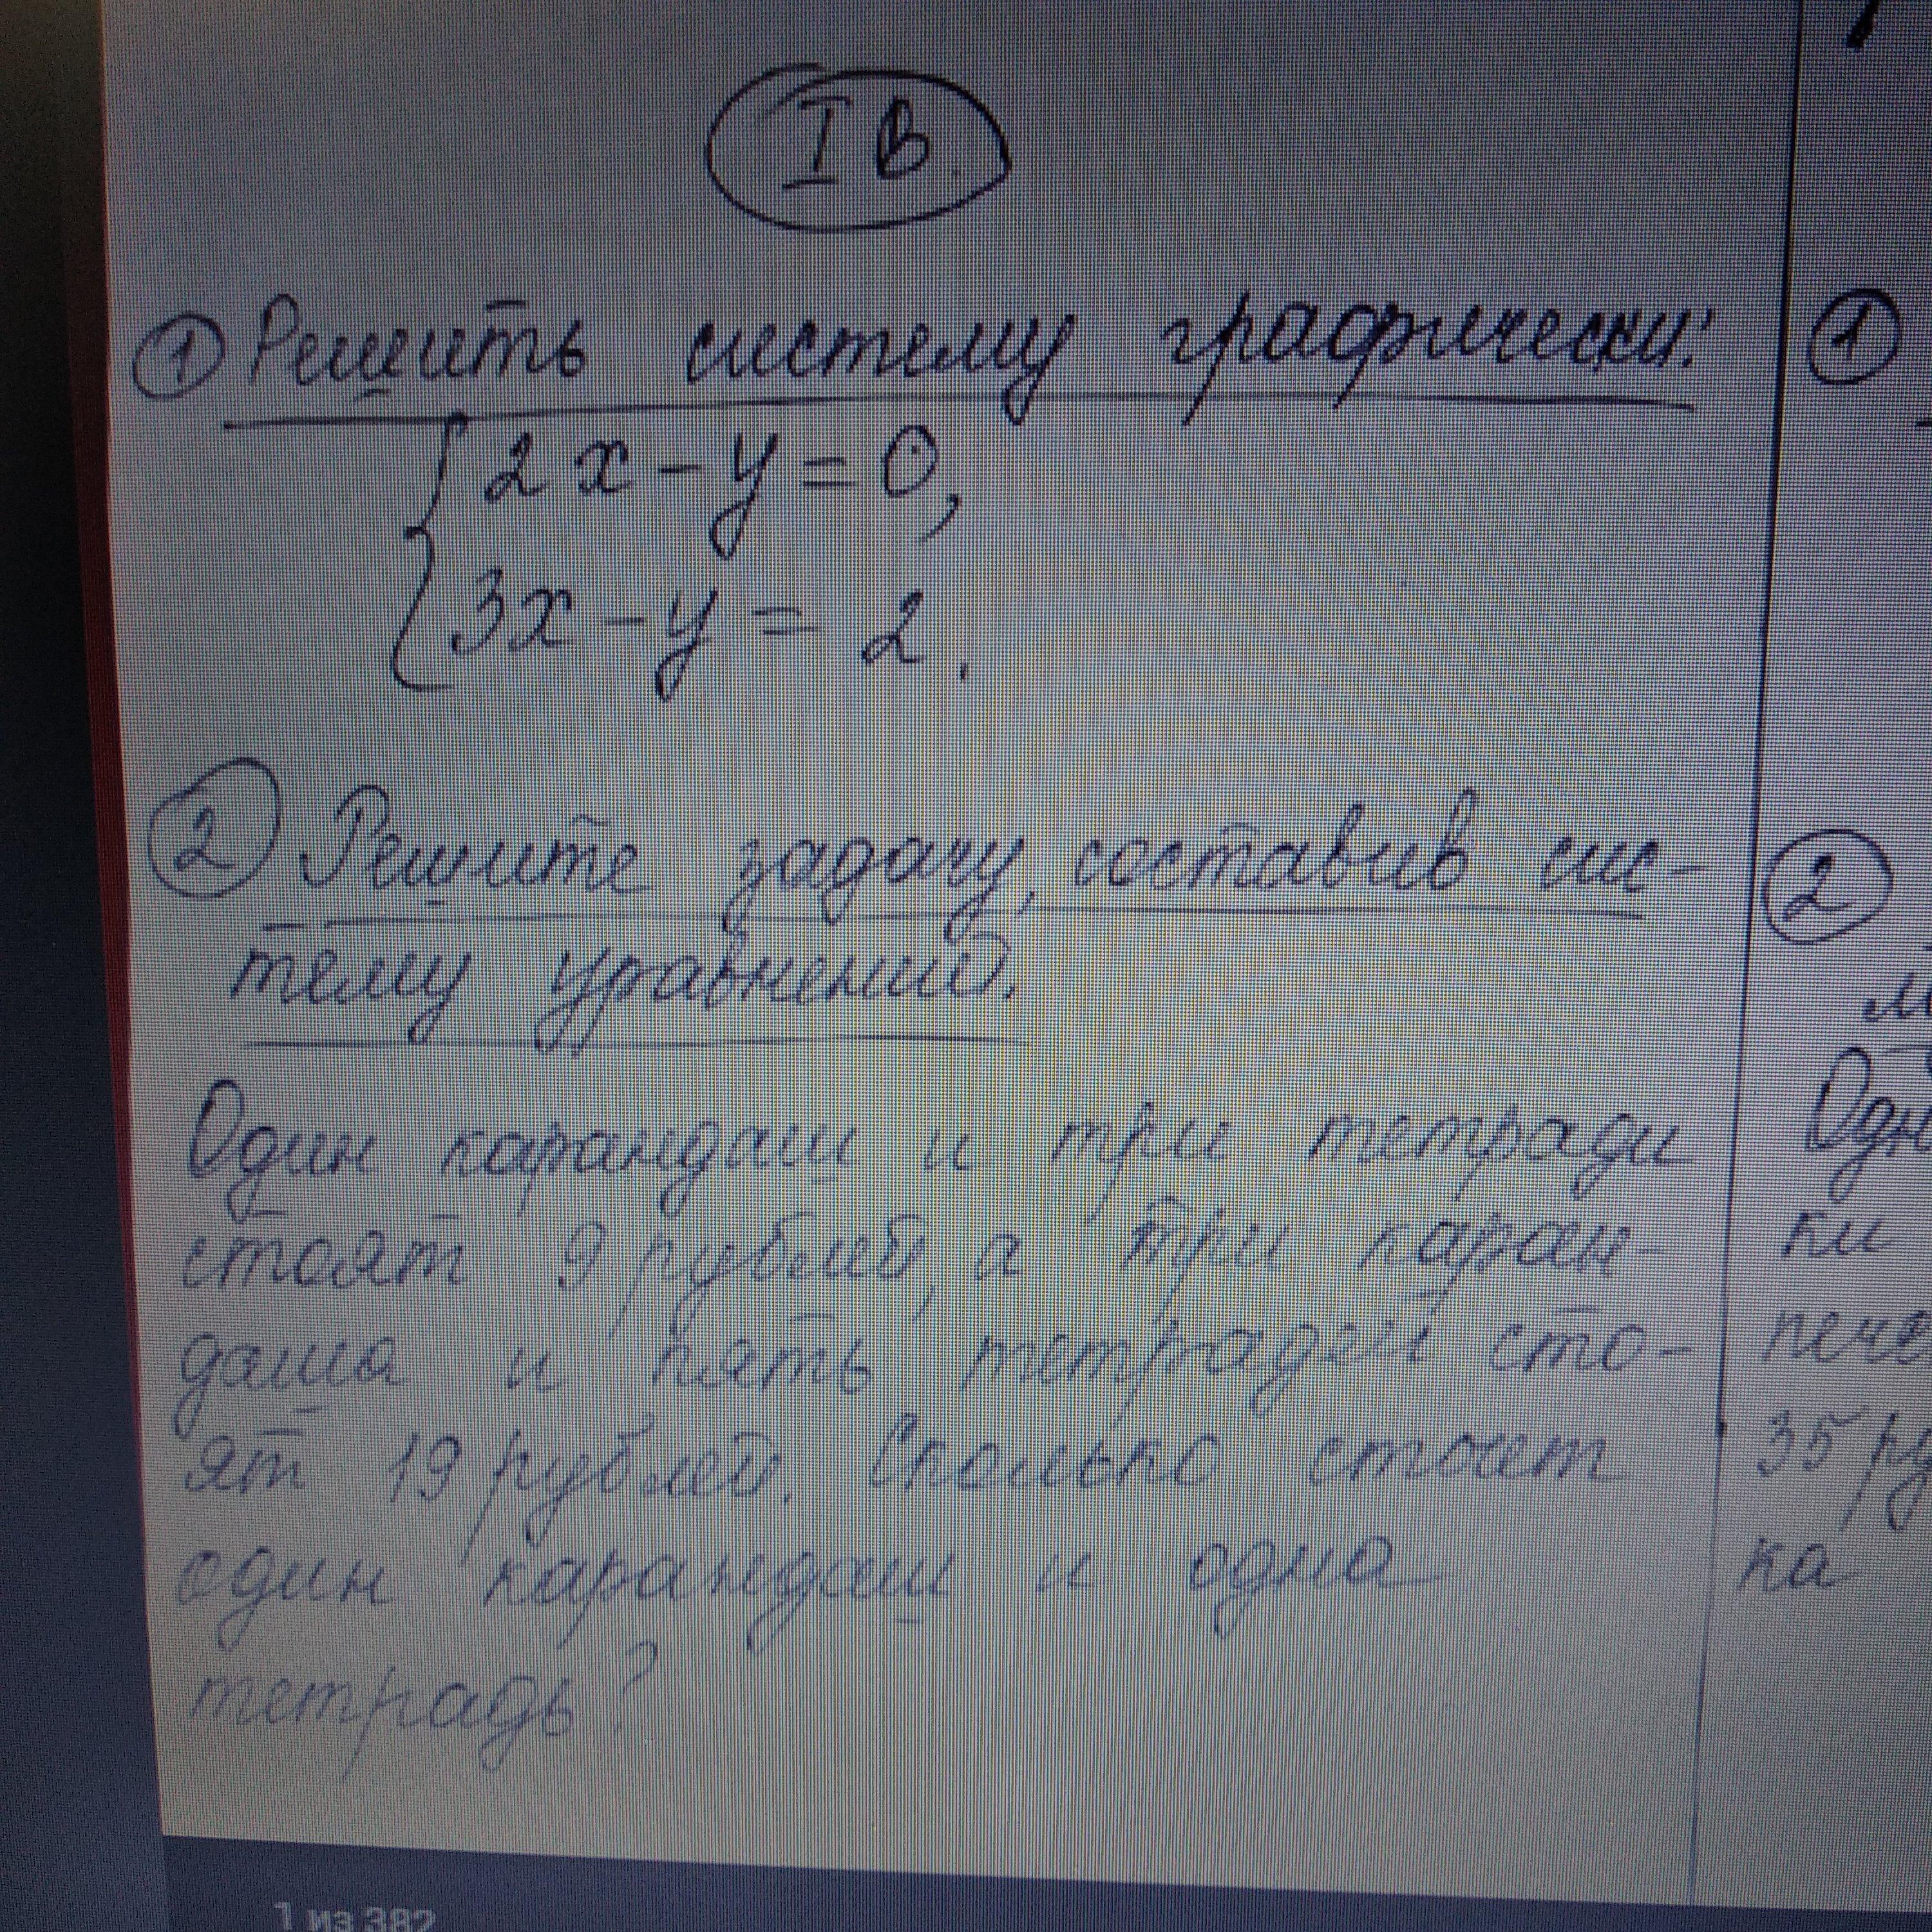 I В.
① Решить систему графически:
2x - y = 0,
3x - y = 2.
② Решите задачу, составив сис-
тему уравнений.
Один карандаш и три тетради
стоят 9 рублей, а три каран-
даша и пять тетрадей сто-
ят 19 рублей. Сколько стоит
один карандаш и одна
тетрадь?
①
②
Одн
ки
пече
35 ру
ка
1 из 382